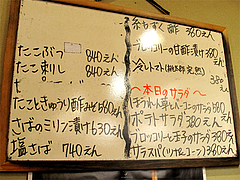 たこぶつ 840えん
たこ刺し 840えん
たこときゅうり酢
さばのミリン漬け 630えん
塩さば 740えん
糸もずく酢 360えん
ブロッコリーの甘酢漬け 380えん
冷しトマト 380えん
〜本日のサラダ〜
ほうれん草とベーコンのサラダ
ポテトサラダ 380えん
ブロッコリーと玉子のサラダ 380
サラスパ(ツナ、コーン) 360えん